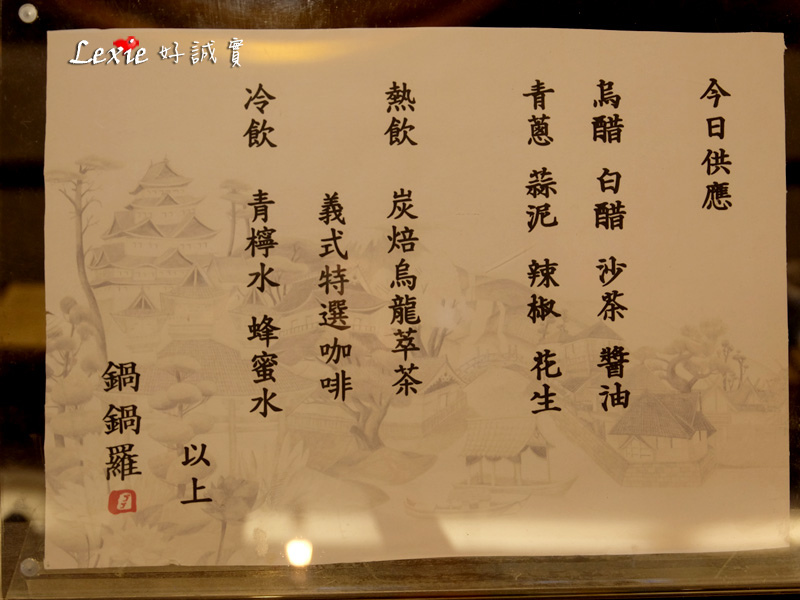 Lexie 好誠實
今日供應
烏醋 白醋 沙茶 醬油
青蔥 蒜泥 辣椒 花生
熱飲 炭焙烏龍萃茶
義式特選咖啡
冷飲 青檸水 蜂蜜水
以上
鍋鍋羅